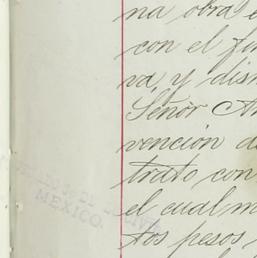 na obra e
con el fin
va, y dism
Señor An
vención d
trato con
el cual m
tos pesos
MEXICO.